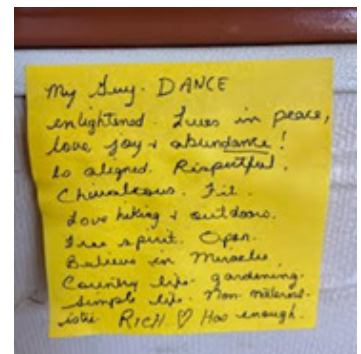 My Guy. DANCE
enlightened. Lives in peace,
love, joy & abundance!
Is aligned. Respectful.
Chivalrous. Fit.
Love hiking & outdoors.
Free spirit. Open.
Believe in Miracles
Country life. gardening.
Simple life. Non material-
istic RICH ♡ Has enough.